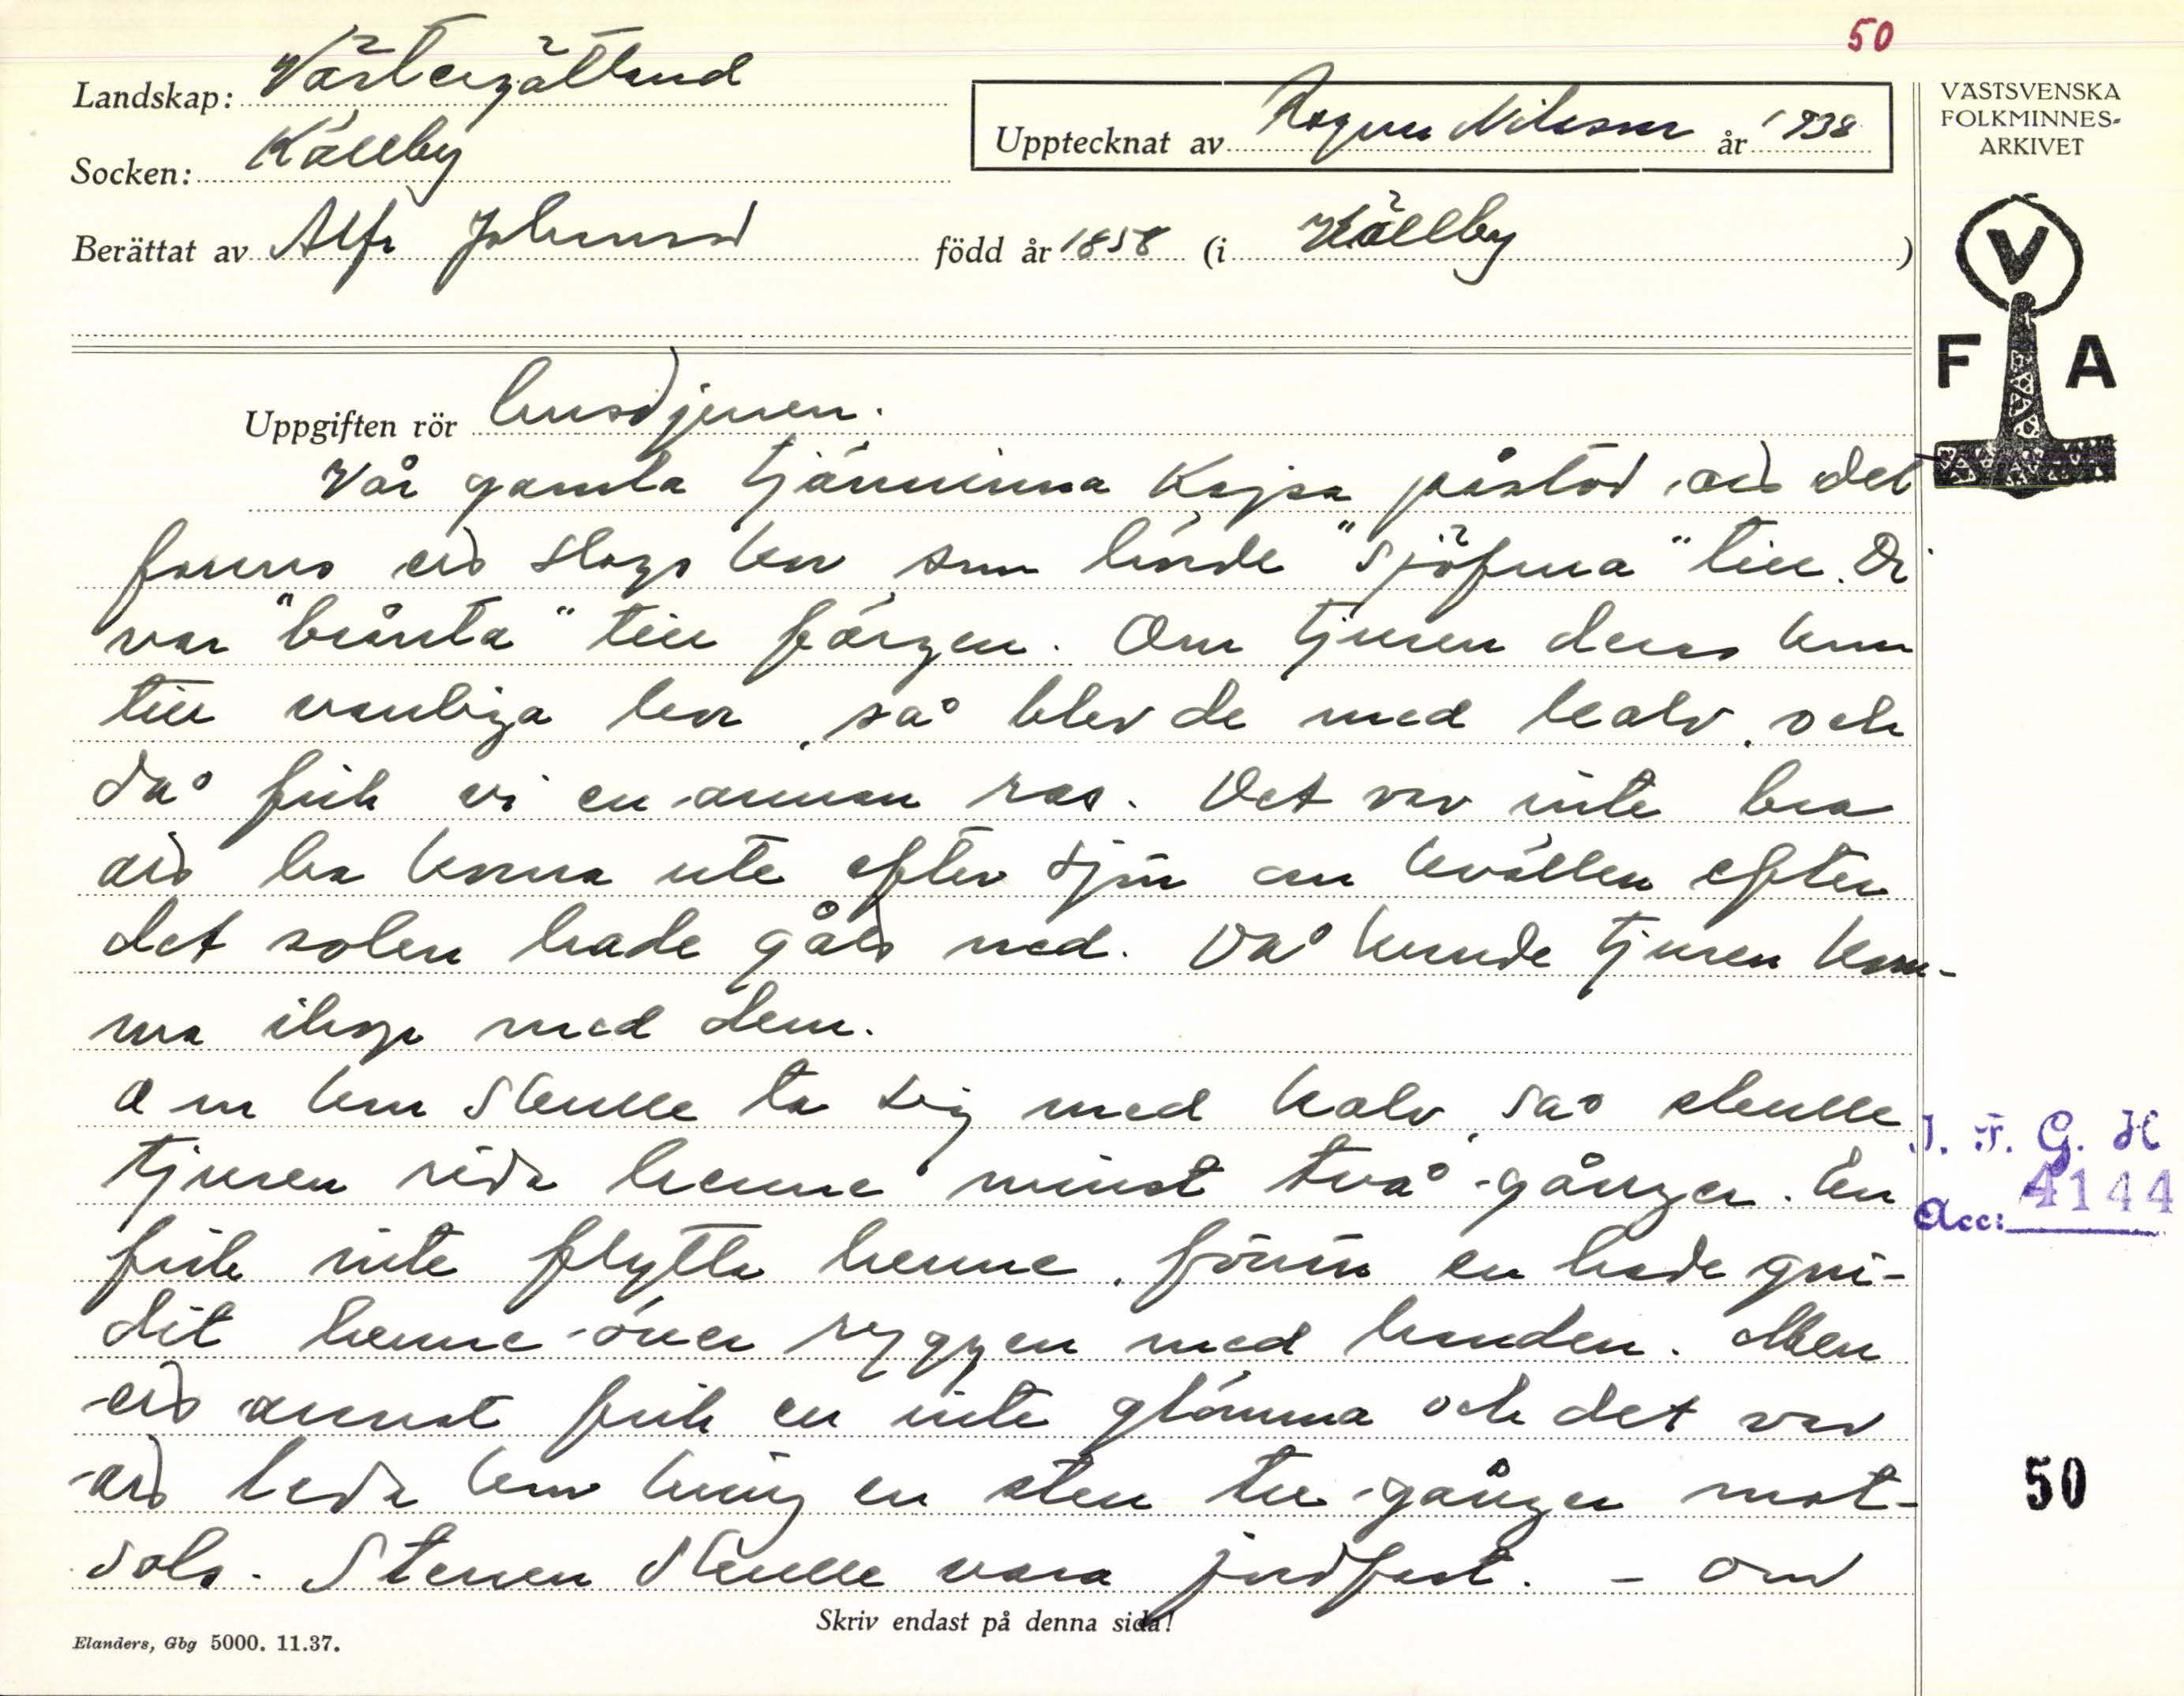 50
Landskap: Västergötland
Socken: Källby
Upptecknat av Ragnar Nilsson år 1938
VÄSTSVENSKA
FOLKMINNES-
ARKIVET
Berättat av Alfr Johansson född år 1858 (i Källby)
V
F A
Uppgiften rör husdjuren.
Vår gamla tjänninna Kajsa påstod, att det
fanns ett slags kor, som hörde "sjöfrua" till. De
var "brånta" till färgen. Om tjuren deras kom
till vanliga kor, så blev de med kalv, och
då fick vi en annan ras. Det var inte bra
att ha korna ute efter sjön om kvällen efter
det solen hade gått ned. Då kunde tjuren kom-
ma ihop med dem.
Om kon skulle ta sig med kalv, så skulle
tjuren rida henne minst två gånger. En
fick inte flytta henne, förrän en hade gni-
dit henne över ryggen med handen. Men
ett annat fick en inte glömma och det var
att leda kon kring en sten tre gånger mot-
sols. Stenen skulle vara jordfast. - Om
I. F. G. H
Acc: 4144
50
Skriv endast på denna sida!
Elanders, Gbg 5000. 11.37.